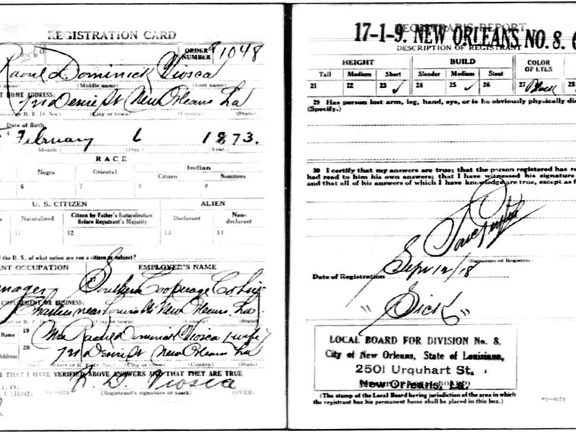 REGISTRATION CARD
ORDER NUMBER 1048
Raoul Dominick Viosca
(Middle name) (Last name)
HOME ADDRESS:
New Orleans La
Date of Birth
February 6 1873.
RACE
Negro Oriental Indian
Citizen Noncitizen
6 7 8 9
U. S. CITIZEN ALIEN
Naturalized Citizen by Father's Naturalization Before Registrant's Majority Declarant Non-declarant
11 12 13 14
OCCUPATION EMPLOYER'S NAME
Manager Southern Cooperage Co
near New Orleans La.
19
20
Mrs Raoul Dominick Viosca (wife)
New Orleans La
THAT I HAVE VERIFIED ABOVE ANSWERS AND THAT THEY ARE TRUE
R. D. Viosca
(Registrant's signature or mark) (OVER)
REGISTRAR'S REPORT
17-1-9. NEW ORLEANS NO. 8.
DESCRIPTION OF REGISTRANT
HEIGHT BUILD COLOR OF EYES
Tall Medium Short Slender Medium Stout
21 22 23 ✓ 24 25 ✓ 26 27 Black 28
29 Has person lost arm, leg, hand, eye, or is he obviously physically
(Specify.)
30 I certify that my answers are true; that the person registered has
had read to him his own answers; that I have witnessed his signature
and that all of his answers of which I have knowledge are true, except as
Date of Registration Sept 12/18
"Sick"
LOCAL BOARD FOR DIVISION No. 8.
City of New Orleans, State of Louisiana,
2501 Urquhart St.
New Orleans, La.
(The stamp of the Local Board having jurisdiction of the area in which
the registrant has his permanent home shall be placed in this box.)